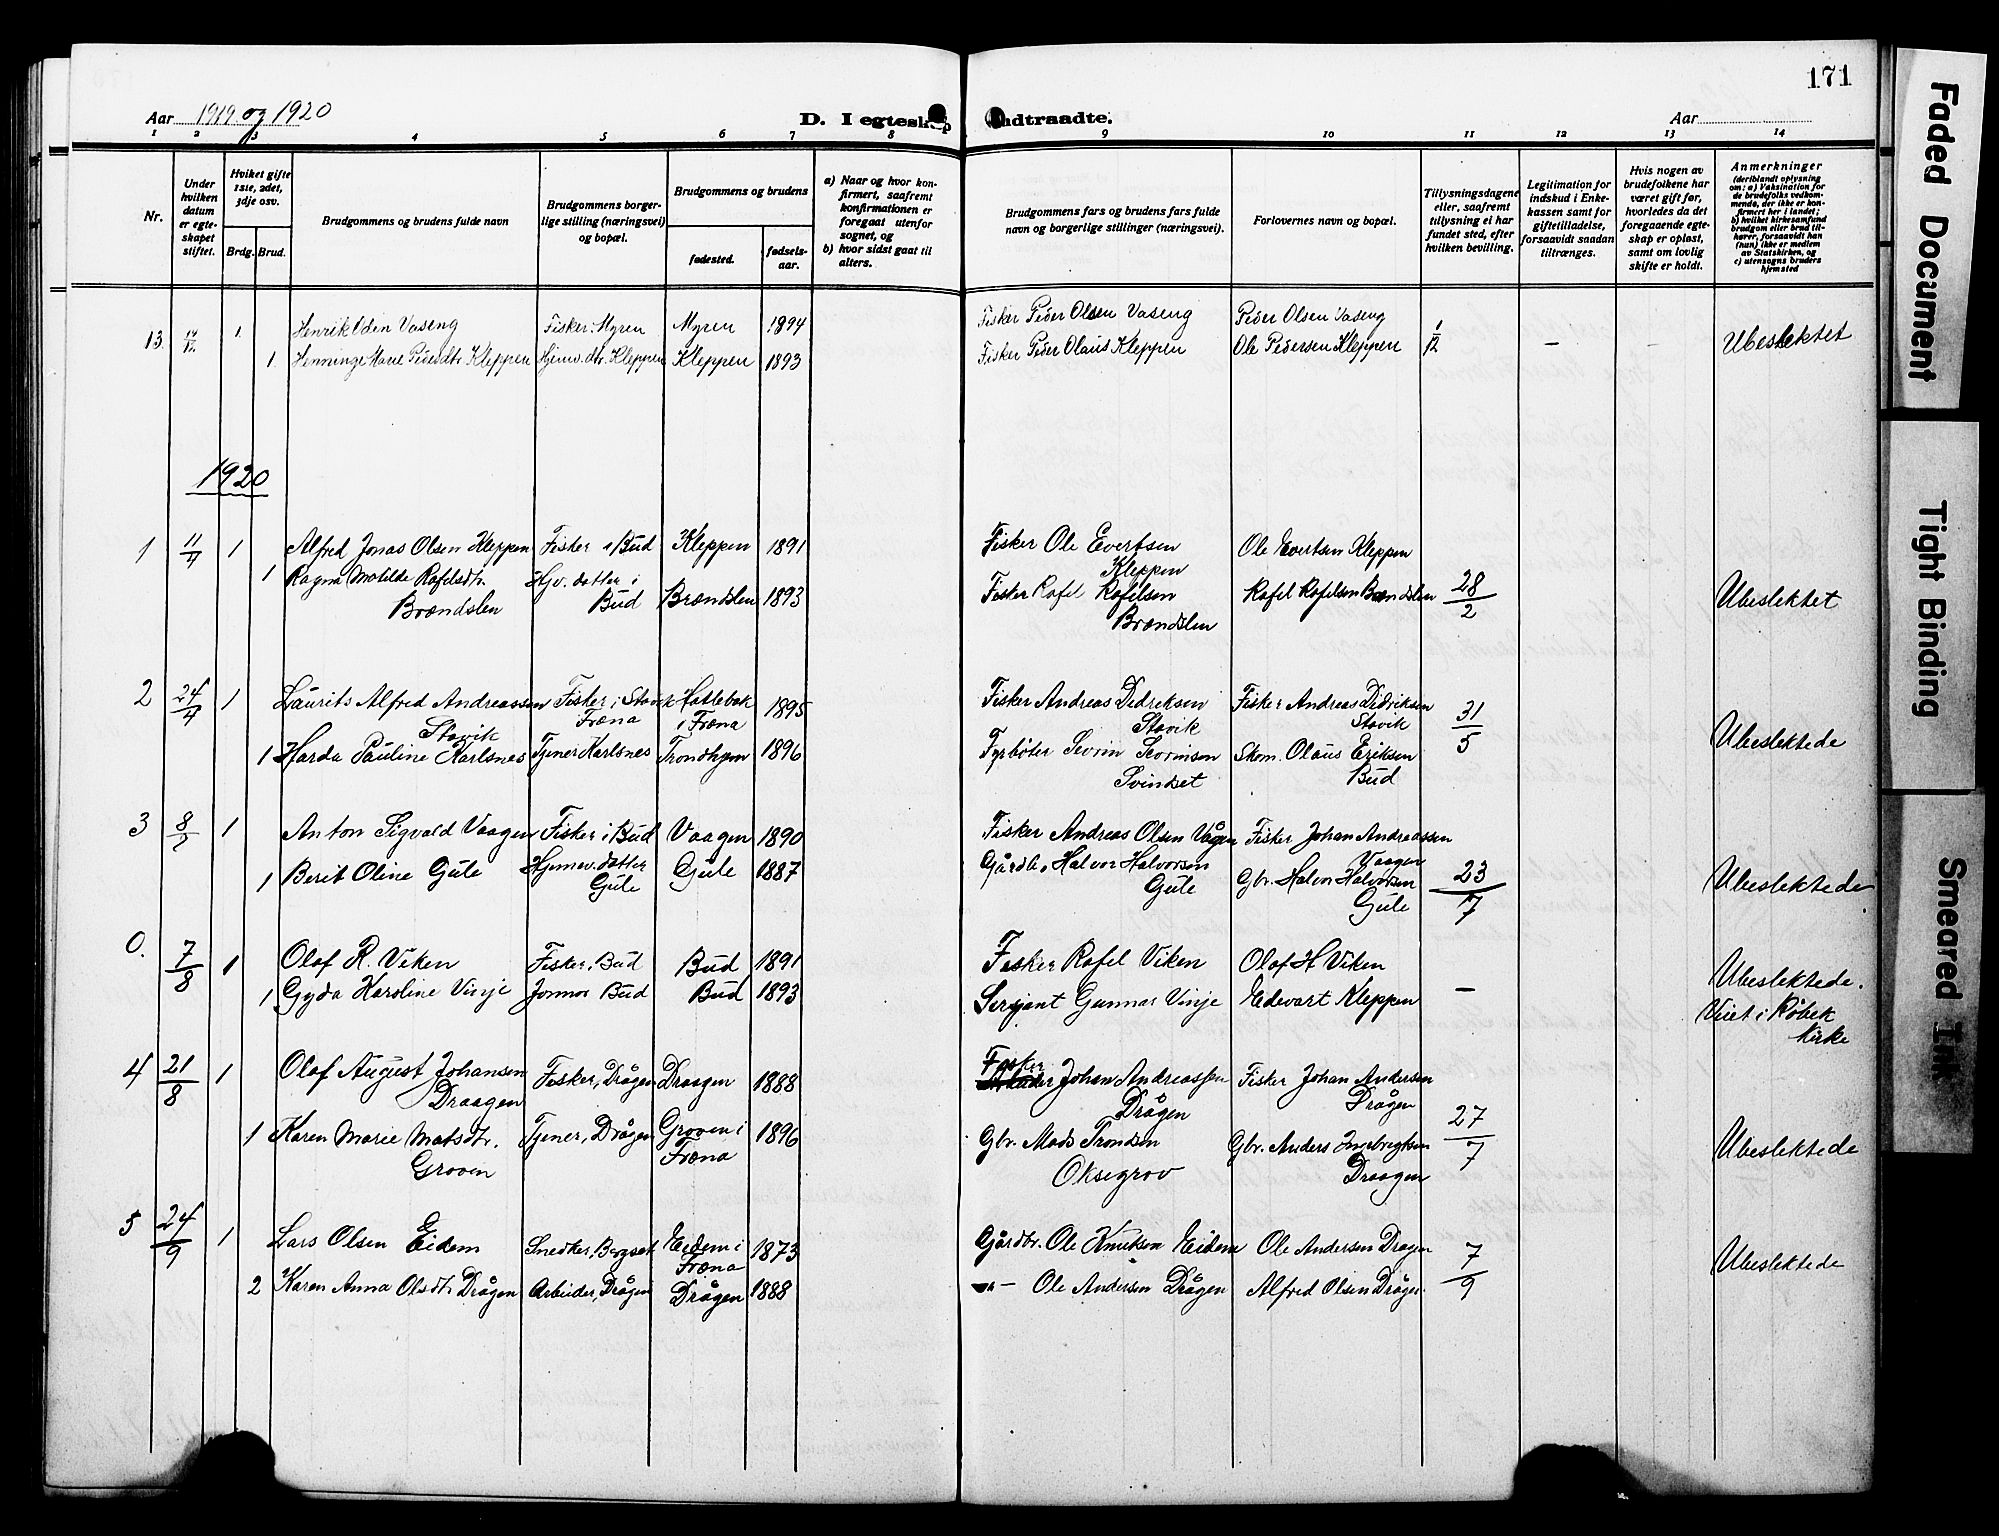 171
Aar 1919 og 1920
D. I egteskap indtraadte.
Aar
1 2 3 4 5 6 7 8 9 10 11 12 13 14
Nr.
Under hvilken datum er egteskapet stiftet.
Hvilket gifte 1ste, 2det, 3dje osv.
Brdg. Brud.
Brudgommens og brudens fulde navn
Brudgommens borgerlige stilling (næringsvei) og bopæl.
Brudgommens og brudens
fødested.
fødselsaar.
a) Naar og hvor konfirmert, saafremt konfirmationen er foregaat utenfor sognet, og
b) hvor sidst gaat til alters.
Brudgommens fars og brudens fars fulde navn og borgerlige stillinger (næringsvei).
Forlovernes navn og bopæl.
Tillysningsdagene eller, saafremt tillysning ei har fundet sted, efter hvilken bevilling.
Legitimation for indskud i Enkekassen samt for giftetilladelse, forsaavidt saadan tiltrænges.
Hvis nogen av brudefolkene har været gift før, hvorledes da det foregaaende egteskap er opløst, samt om lovlig skifte er holdt.
Anmerkninger
(deriblandt oplysning om: a) Vaksination for de brudefolks vedkommende, der ikke er konfirmert her i landet; b) hvilket kirkesamfund brudgom eller brud tilhører, forsaavidt han (hun) ikke er medlem av Statskirken, og c) utensogns bruders hjemsted
13. 14/12 1. Henrik Odin Vaseng Fisker. Myren Myren 1894 Fisker Peder Olsen Vaseng Peder Olsen Vaseng 1/12 – – Ubeslektet
1 Henninge Marie Pedersdtr Kleppen Hjemv. dtr. Kleppen Kleppen 1893 Fisker Peder Olaus Kleppen Ole Pedersen Kleppen
1920
1 11/4 1 Alfred Jonas Olsen Kleppen Fisker i Bud Kleppen 1891 Fisker Ole Evertsen Kleppen Ole Evertsen Kleppen
1 Ragna Matilde Rafelsdtr. Brændslen Hjv. datter i Bud Brændslen 1893 Fisker Rafel Rafelsen Brændslen Rafel Rafelsen Brændslen 28/2 Ubeslektet
2 24/4 1 Laurits Alfred Andreassen Stavik Fisker i Stavik Fræna Hatlebak i Fræna 1895 Fisker Andreas Didriksen Stavik Fisker Andreas Didriksen Stavik 31/5
1 Harda Pauline Karlsnes Tjener Karlsnes Trondhjem 1896 Fyrbøter Sevrin Sevrinson Svindset Skom. Olaus Eriksen Bud Ubeslektede
3 8/7 1 Anton Sigvald Vaagen Fisker i Bud Vaagen 1890 Fisker Andreas Olsen Vågen Fisker Johan Andreassen Vaagen
1 Berit Oline Gule Hjemmev. datter Gule Gule 1887 Gårdb. Halvor Halvorsen Gule Gbr. Halvor Halvorsen Gule 23/7 Ubeslektede
0. 7/8 1 Olaf R. Viken Fisker, Bud Bud 1891 Fisker Rafel Viken Olaf H Viken
1 Gyda Karoline Vinje Jonmor Bud Bud 1893 Sersjant Gunnar Vinje Edevart Kleppen – Ubeslektede. Viet i Røbek kirke
4 21/8 1 Olaf August Johansen Draagen Fisker, Drågen Draagen 1888 Fisker Johan Andreassen Drågen Fisker Johan Andersen Drågen
1 Karen Marie Matsdtr. Groven Tjener, Drågen Groven i Fræna 1896 Gbr. Mads Trondsen Oksegrov Gbr. Anders Ingebrigtsen Draagen 27/7 Ubeslektede
5 24/9 1 Lars Olsen Eidem Snedker, Bergset Eidem i Fræna 1873 Gårdbr. Ole Knutsen Eidem Ole Andersen Dragen 7/9 Ubeslektede
2 Karen Anna Olsdtr Drågen Arbeider, Drågen Drågen 1888 –"– Ole Andersen Drågen Alfred Olsen Drågen
Faded Document
Tight Binding
Smeared Ink